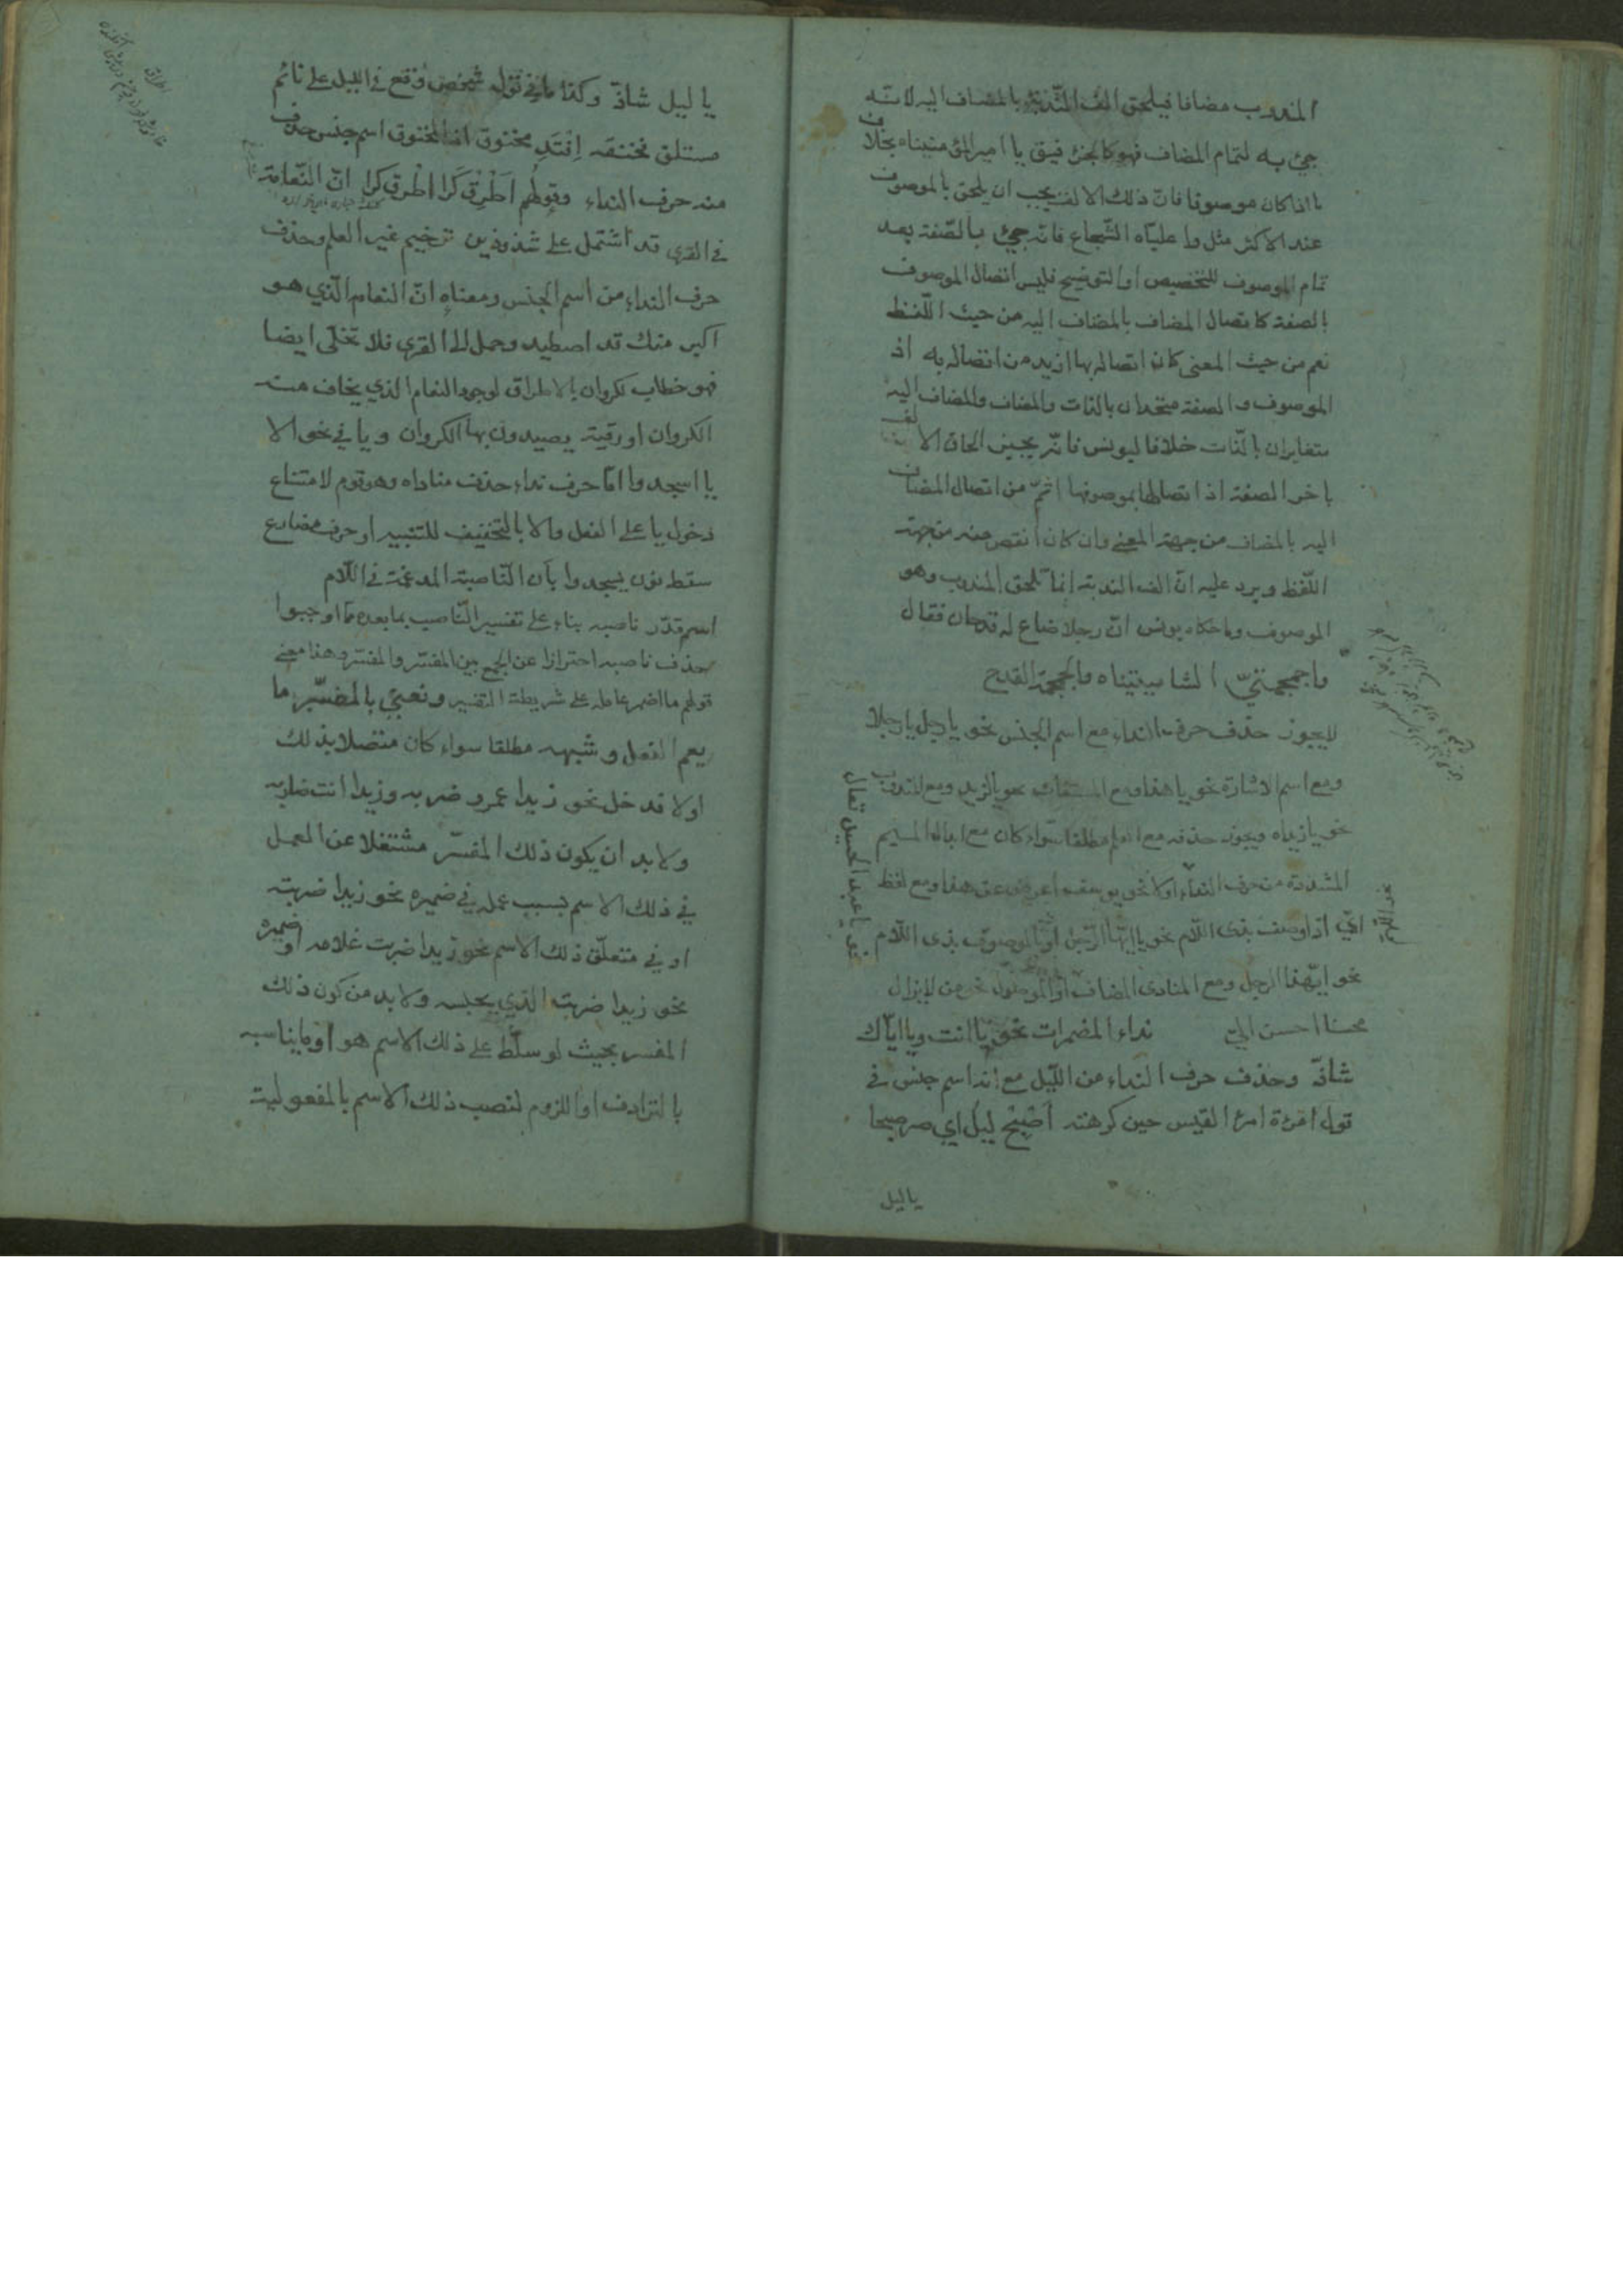 المندوب مضافا فيلحق الف الندبة بالمضاف اليه لانه
جئ به لتمام المضاف فهو كالجزء فيق يا امير المؤمنيناه بخلاف
ما اذا كان موصوفا فان ذلك الالف يجب ان يلحق بالموصوف
عند الاكثر مثل وا عليّاه الشّجاع فانه جئ بالصّفة بعد
تمام الموصوف للتخصيص او التوضيح فليس اتصال الموصوف
بالصفة كاتصال المضاف بالمضاف اليه من حيث اللّفظ
نعم من حيث المعنى كان اتصاله بها ازيد من اتصاله به اذ
الموصوف والصفة متحدان بالذات والمضاف والمضاف اليه
متغايران بالذّات خلافا ليونس فانّه يجيز الحاق الالف
باخر الصفة اذ اتصالها بموصوفها اتمّ من اتصال المضاف
اليه بالمضاف من جهة المعنى وان كان انقص منه من جهة
اللّفظ ويرد عليه انّ الف الندبة انما تلحق المندوب وهو
الموصوف وما حكاه يونس انّ رجلا ضاع له قدحان فقال
واجمجمتيّ الشاميتيناه والجمجمة القدح
لايجوز حذف حرف النداء مع اسم الجنس نحو يا رجل يا رجلا
ومع اسم الاشارة نحو يا هذا ومع المستغاث نحو يا لزيد ومع المندوب
نحو يا زيداه ويجوز حذفه مع العلم مطلقا سواء كان مع ابدال الميم
المشددة من حرف النداء اولا نحو يوسف اعرض عن هذا ومع لفظ
ايّ اذا وصف بذى اللّام نحو يا ايّها الرّجل او بالموصوف بذى اللّام
نحو ايّهذا الرجل ومع المنادى المضاف او الموصول نحو من لايزال
محسنا احسن اليّ نداء المضمرات نحو يا انت ويا ايّاك
شاذّ وحذف حرف النداء من اللّيل مع انه اسم جنس في
قول امرءة امرئ القيس حين كرهته اَصْبِحْ ليلُ اي صر صبحا
يا ليل
يا ليل شاذّ وكذا ما في قول شخص وقع في الليل على نائم
مستلق فخنقه اِفْتَدِ مخنوق اذ المخنوق اسم جنس حذف
منه حرف النداء وقولهم اَطْرِقْ كَرا اَطْرِق كرا انّ النّعامة
في القرى قد اشتمل على شذوذين ترخيم غير العلم وحذف
حرف النداء من اسم الجنس ومعناه انّ النعام الّذي هو
اكبر منك قد اصطيد وحمل الى القرى فلا تخلّى ايضا
فهو خطاب لكروان بالاطراق لوجود النعام الذي يخاف منه
الكروان او رقية يصيدون بها الكروان ويا في نحو الا
يا اسجدوا امّا حرف نداء حذف مناداه وهو قوم لامتناع
دخول يا على الفعل والا بالتخفيف للتنبيه او حرف مضارع
سقط نون يسجدوا بأن النّاصبة المدغمة في اللّام
اسم قدّر ناصبه بناء على تفسير النّاصب بما بعده ممّا اوجبوا
حذف ناصبه احترازا عن الجمع بين المفسّر والمفسّر وهذا معنى
قولهم ما اضمر عامله على شريطة التفسير ونعني بالمفسّر ما
يعم الفعل وشبهه مطلقا سواء كان متصلا بذلك
اولا فدخل نحو زيدا عمرو ضربه وزيدا انت ضاربه
ولابد ان يكون ذلك المفسّر مشتغلا عن العمل
في ذلك الاسم بسبب عمله في ضميره نحو زيدا ضربته
او في متعلّق ذلك الاسم نحو زيدا ضربت غلامه او ضميره
نحو زيدا ضربت الذي يحبسه ولابد من كون ذلك
المفسر بحيث لو سلّط على ذلك الاسم هو او ما يناسبه
بالترادف او اللزوم لنصب ذلك الاسم بالمفعولية